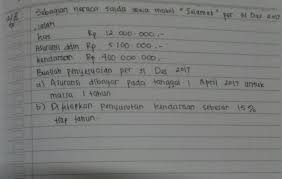 Sebagian neraca saldo sewa mobil "Selamat" per 31 Des 2017
ialah
kas Rp 12 000 000,-
Asuransi ddm Rp 5 100 000,-
kendaraan Rp 400 000 000,-
Buatlah penyesuaian per 31 Des 2017
a) Asuransi dibayar pada tanggal 1 April 2017 untuk
masa 1 tahun
b) Ditetapkan penyusutan kendaraan sebesar 15%
tiap tahun.